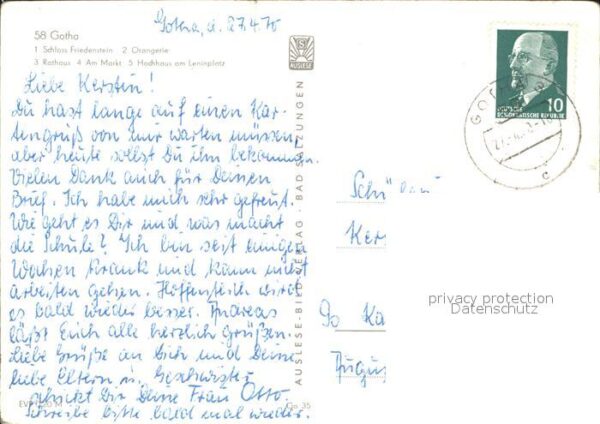 Gotha, d. 27.4.70
58 Gotha
1 Schloss Friedenstein 2 Orangerie
3 Rathaus 4 Am Markt 5 Hochhaus am Leninplatz
AUSLESE
Liebe Kerstin!
Du hast lange auf einen Kar-
tengruß von mir warten müssen,
aber heute sollst Du ihn bekommen.
Vielen Dank auch für Deinen
Brief. Ich habe mich sehr gefreut.
Wie geht es Dir und was macht
die Schule? Ich bin seit einigen
Wochen krank und kann nicht
arbeiten gehen. Hoffentlich wird
es bald wieder besser. Andreas
läßt Euch alle herzlich grüßen.
Liebe Grüße an Dich und Deine
lieben Eltern u. Geschwister
schickt Dir Deine Frau Otto.
Schreibe bitte bald mal wieder.
AUSLESE-BILD-VERLAG · BAD SALZUNGEN
10
DEUTSCHE
DEMOKRATISCHE REPUBLIK
GOTHA
c
Ker
Ka
Augus
privacy protection
Datenschutz
Go 35